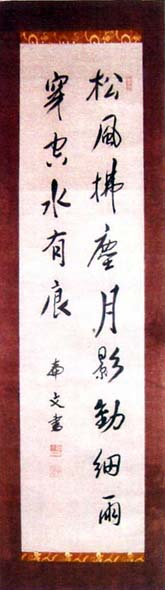 松風拂塵月影動細雨
穿空水有浪
南文書